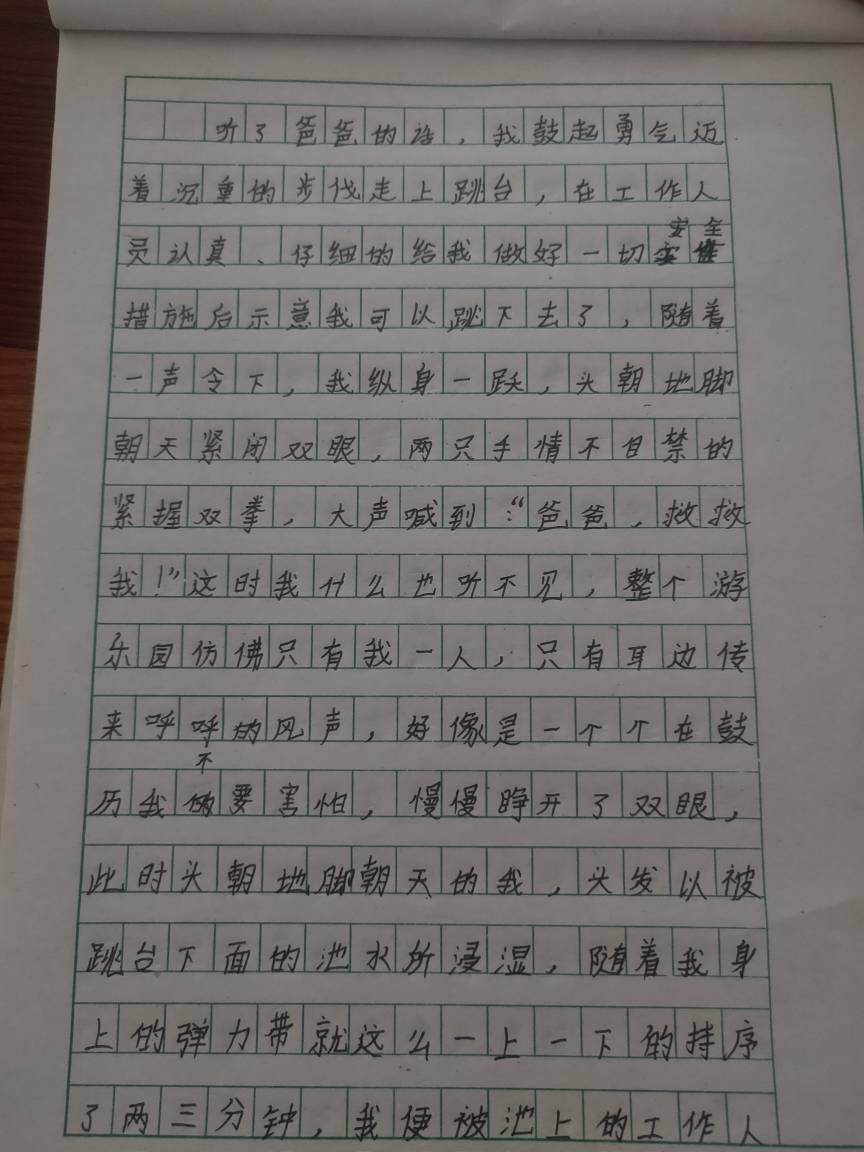 听了爸爸的话，我鼓起勇气迈
着沉重的步伐走上跳台，在工作人
员认真、仔细的给我做好一切安全
措施后示意我可以跳下去了，随着
一声令下，我纵身一跃，头朝地脚
朝天紧闭双眼，两只手情不自禁的
紧握双拳，大声喊到：“爸爸，救救
我！”这时我什么也听不见，整个游
乐园仿佛只有我一人，只有耳边传
来呼呼的风声，好像是一个个在鼓
历我不要害怕，慢慢睁开了双眼，
此时头朝地脚朝天的我，头发以被
跳台下面的池水所浸湿，随着我身
上的弹力带就这么一上一下的持序
了两三分钟，我便被池上的工作人